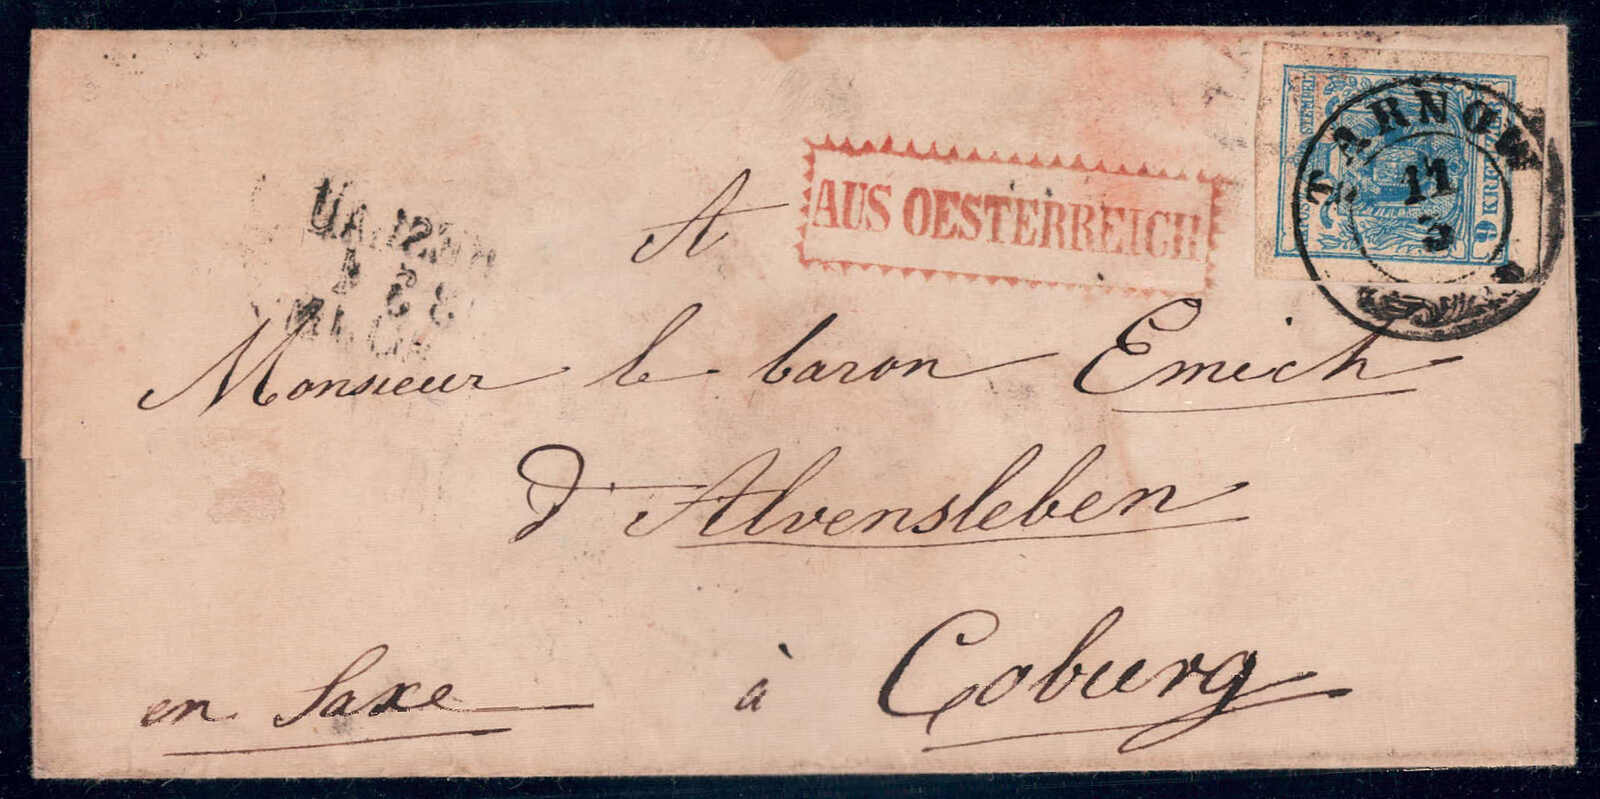 AUS OESTERREICH
TARNOW
11
3
9 KREUZER
A
Monsieur le baron Emich
d'Alvensleben
en Saxe à Coburg